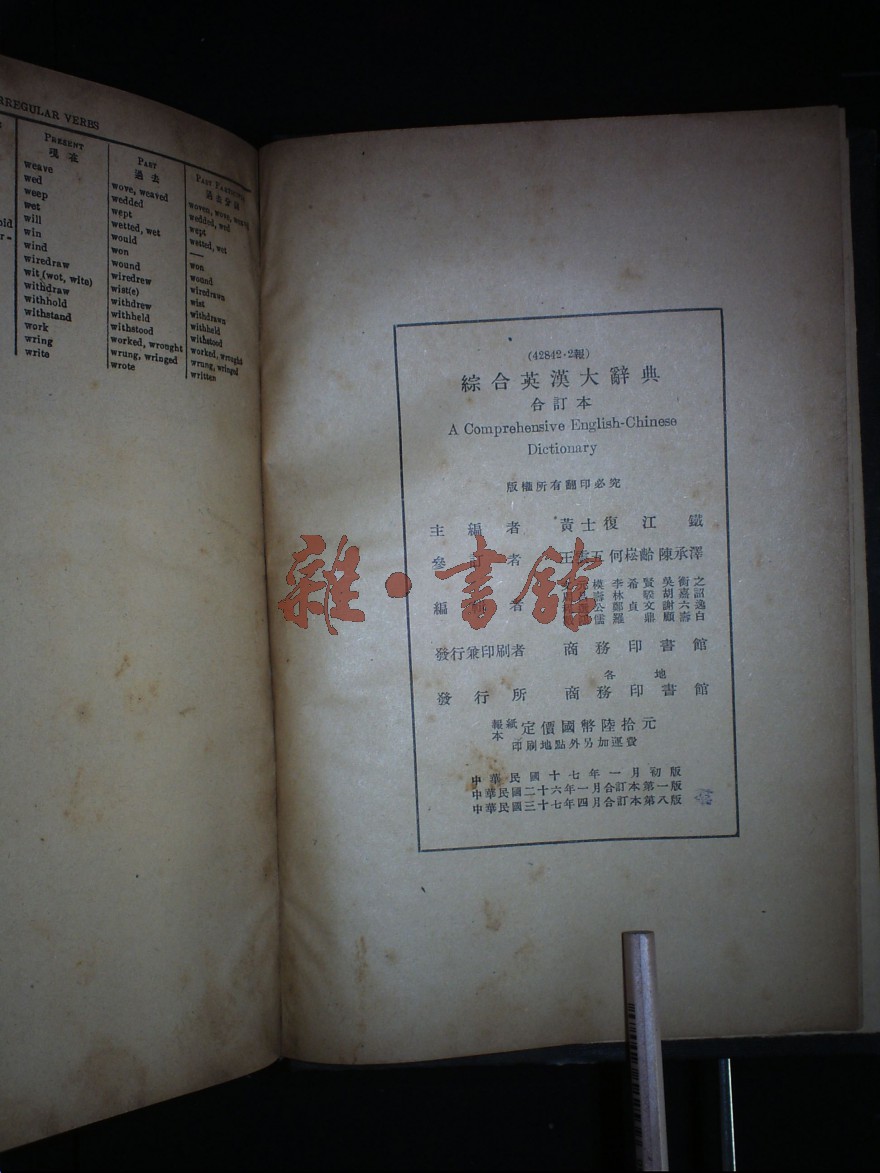 RREGULAR VERBS
PRESENT PAST PAST PARTICIPLE
現在 過去 過去分詞
weave wove, weaved woven, wove, weaved
wed wedded wedded, wed
weep wept wept
wet wetted, wet wetted, wet
will would —
win won won
wind wound wound
wiredraw wiredrew wiredrawn
wit (wot, wite) wist(e) wist
withdraw withdrew withdrawn
withhold withheld withheld
withstand withstood withstood
work worked, wrought worked, wrought
wring wrung, wringed wrung, wringed
write wrote written
(42842·2報)
綜合英漢大辭典
合訂本
A Comprehensive English-Chinese
Dictionary
版權所有翻印必究
主編者 黃士復 江鐵
參訂者 王雲五 何崧齡 陳承澤
模 李希賢 吳衡之
壽 林騤 胡嘉詔
編輯者 公 鄭貞文 謝六逸
儒 羅鼎 顧壽白
發行兼印刷者 商務印書館
各地
發行所 商務印書館
報紙本 定價國幣陸拾元
印刷地點外另加運費
中華民國十七年一月初版
中華民國二十六年一月合訂本第一版
中華民國三十七年四月合訂本第八版
雜·書館